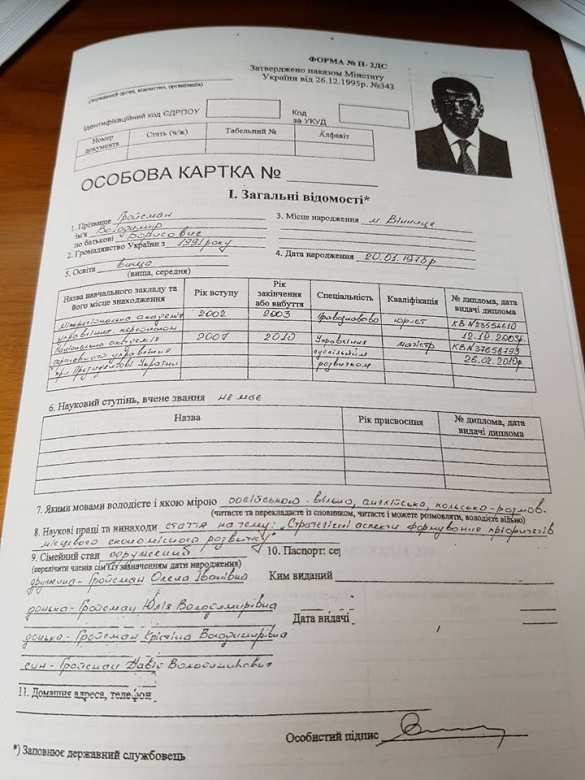 ФОРМА № П-2ДС
Затверджено наказом Мінстату
України від 26.12.1995р. №343
(державний орган, відомство, організація)
Ідентифікаційний код ЄДРПОУ
Код
за УКУД
Номер документа Стать (ч/ж) Табельний № Алфавіт
ОСОБОВА КАРТКА №
І. Загальні відомості*
1. Прізвище Гройсман
ім'я Володимир
по батькові Борисович
2. Громадянство України з 1991 року
3. Місце народження м. Вінниця
4. Дата народження 20.01.1978р
5. Освіта вища
(вища, середня)
Назва навчального закладу та його місце знаходження Рік вступу Рік закінчення або вибуття Спеціальність Кваліфікація № диплома, дата видачі диплома
Міжрегіональна академія управління персоналом 2002 2003 Правознавство юрист 12.10.2003р.
Національна академія державного управління при Президентові України 2007 2010 Управління суспільним розвитком магістр 26.02.2010р.
6. Науковий ступінь, вчене звання не має
Назва Рік присвоєння № диплома, дата видачі диплома
7. Якими мовами володієте і якою мірою російською - вільно, англійська, польсько - розмов.
(читаєте та перекладаєте зі словником, читаєте і можете розмовляти, володієте вільно)
8. Наукові праці та винаходи стаття на тему: „Стратегічні аспекти формування пріоритетів
місцевого економічного розвитку"
9. Сімейний стан одружений
(перелічити членів сім'ї із зазначенням дати народження)
дружина - Гройсман Олена Іванівна
донька - Гройсман Юлія Володимирівна
донька - Гройсман Крістіна Володимирівна
син - Гройсман Давід Володимирович
10. Паспорт: се
Ким виданий
Дата видачі
11. Домашня адреса, телефон
Особистий підпис
*) Заповнює державний службовець